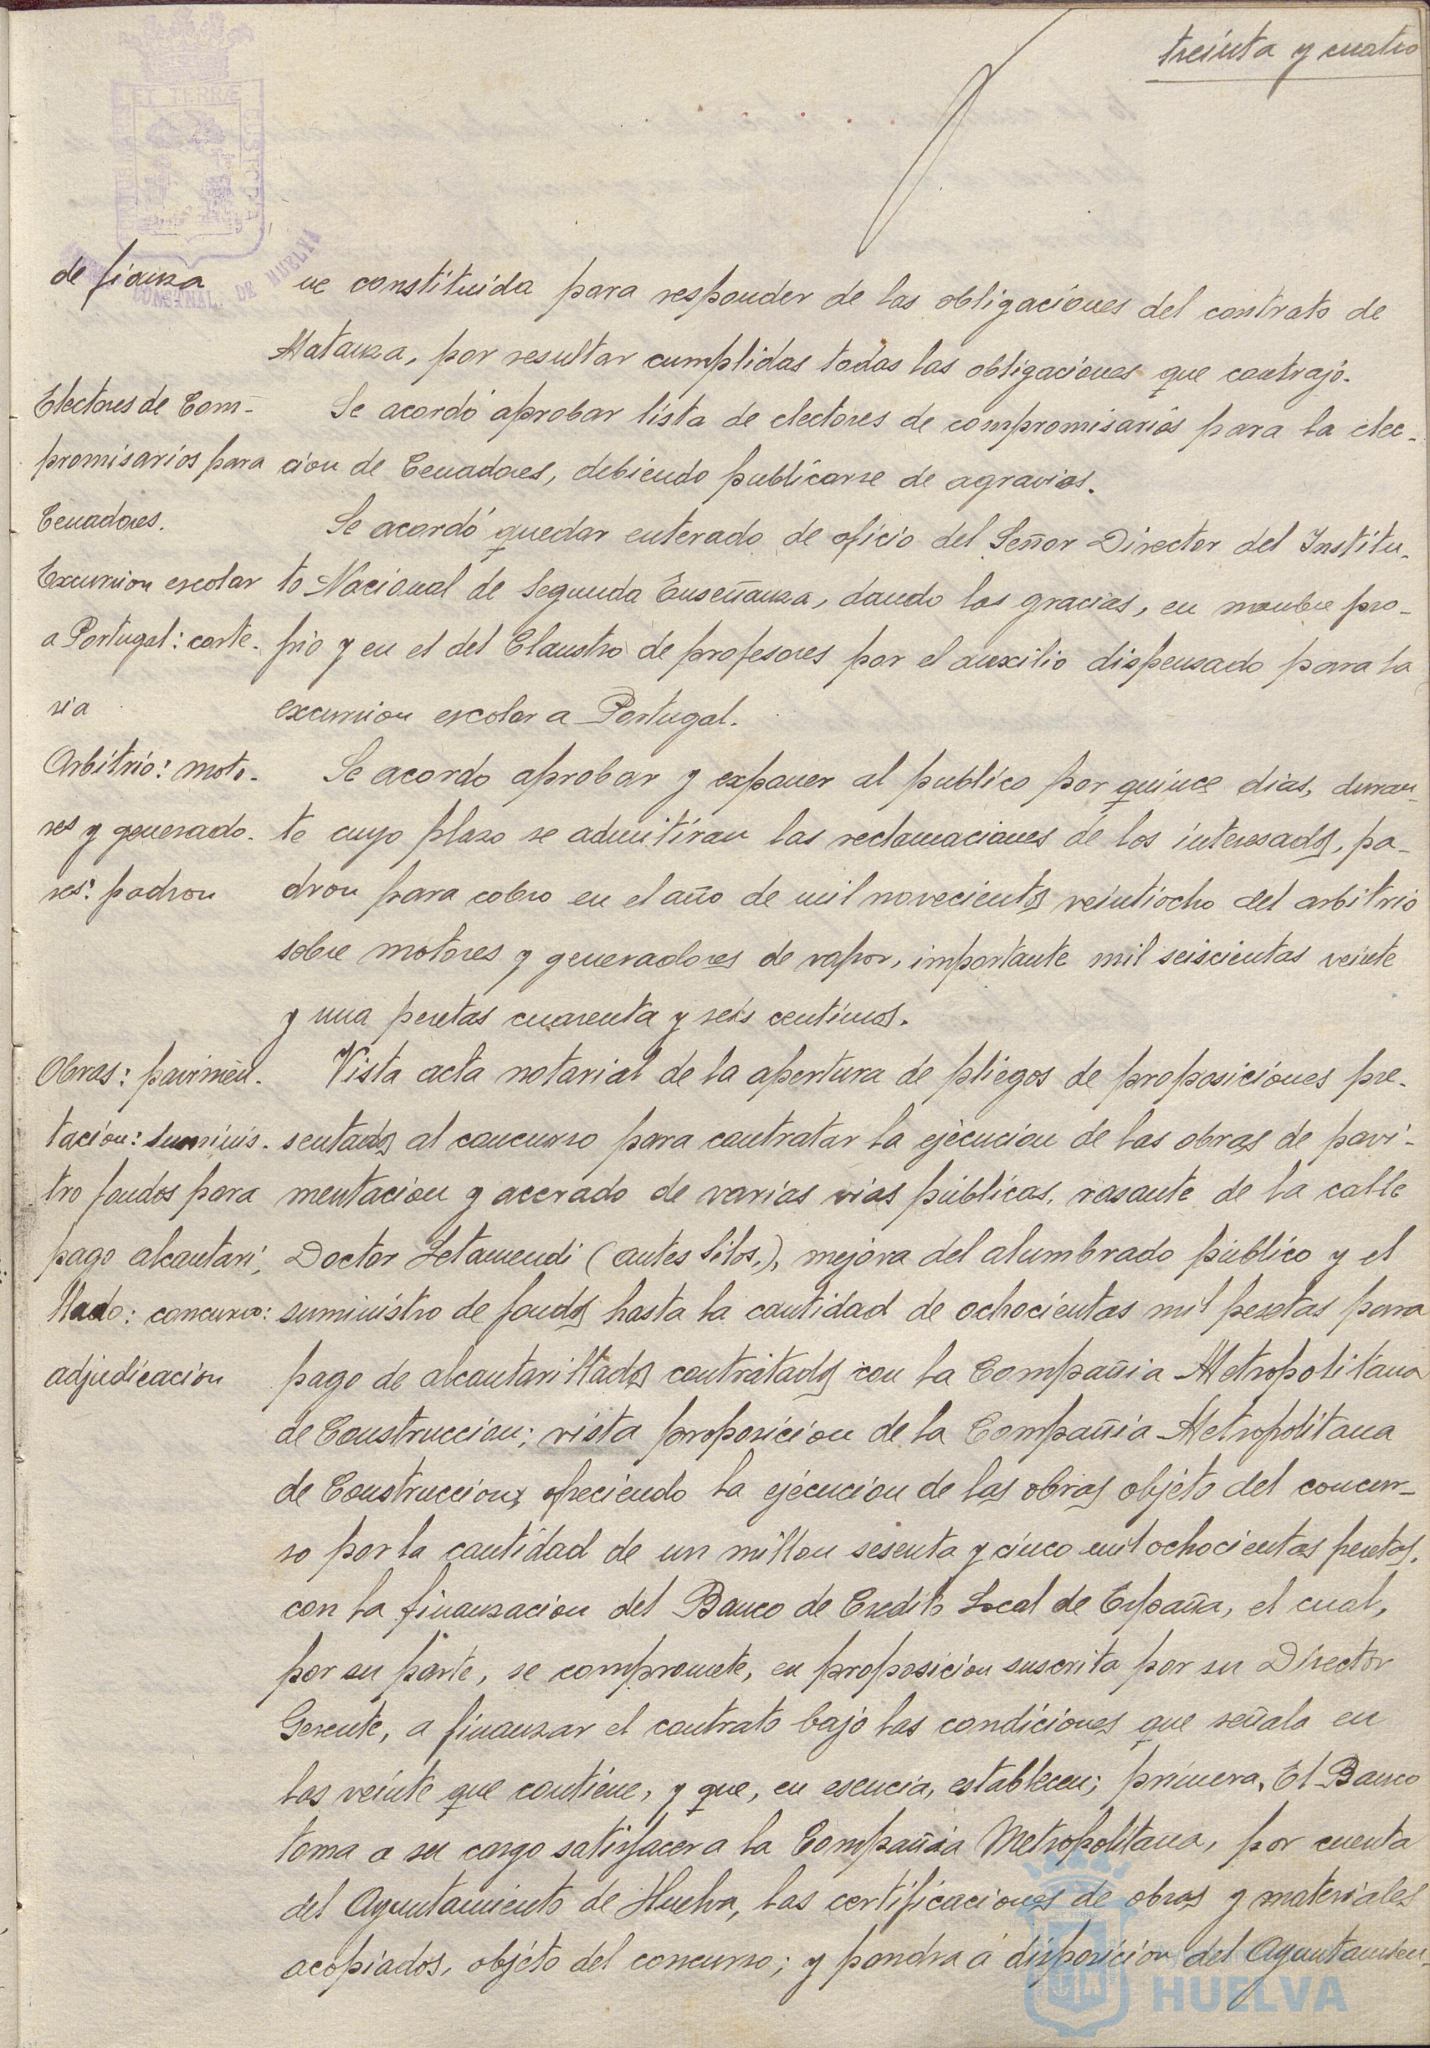 treinta y cuatro
de fianza
ne constituida para responder de las obligaciones del contrato de
Matanza, por resultar cumplidas todas las obligaciones que contrajo.
Electores de Com-
promisarios para
Cenadores.
Se acordó aprobar lista de electores de compromisarios para la elec-
cion de Cenadores, debiendo publicarse de agravios.
Excursion escolar
a Portugal: corte-
sia
Se acordó quedar enterado de oficio del Señor Director del Institu-
to Nacional de Segunda Enseñanza, dando las gracias, en nombre pro-
pio y en el del Claustro de profesores por el auxilio dispensado para la
excursion escolar a Portugal.
Arbitrio: moto-
res y generado-
res: padron
Se acordo aprobar y exponer al publico por quince dias, duran-
te cuyo plazo se admitiran las reclamaciones de los interesados, pa-
dron para cobro en el año de mil novecientos veintiocho del arbitrio
sobre motores y generadores de vapor, importante mil seiscientas veinte
y una pesetas cuarenta y seis centimos.
Obras: pavimen-
tacion: suminis-
tro fondos para
pago alcantari-
llado: concurso:
adjudicacion
Vista acta notarial de la apertura de pliegos de proposiciones pre-
sentados al concurso para contratar la ejecucion de las obras de pavi-
mentacion y acerado de varias vias públicas, rasante de la calle
Doctor Letamendi (antes Silos.), mejora del alumbrado publico y el
suministro de fondos hasta la cantidad de ochocientas mil pesetas para
pago de alcantarillados contratados con la Compañia Metropolitana
de Construccion; vista proposicion de la Compañia Metropolitana
de Construccion, ofreciendo la ejecucion de las obras objeto del concur-
so por la cantidad de un millon sesenta y cinco mil ochocientas pesetas,
con la finanzacion del Banco de Credito Local de España, el cual,
por su parte, se compromete, en proposicion suscrita por su Director
Gerente, a finanzar el contrato bajo las condiciones que señala en
las veinte que contiene, y que, en esencia, establecen; primera, El Banco
toma a su cargo satisfacer a la Compañia Metropolitana, por cuenta
del Ayuntamiento de Huelva, las certificaciones de obras y materiales
acopiados, objeto del concurso; y pondra á disposicion del Ayuntamien-
HUELVA